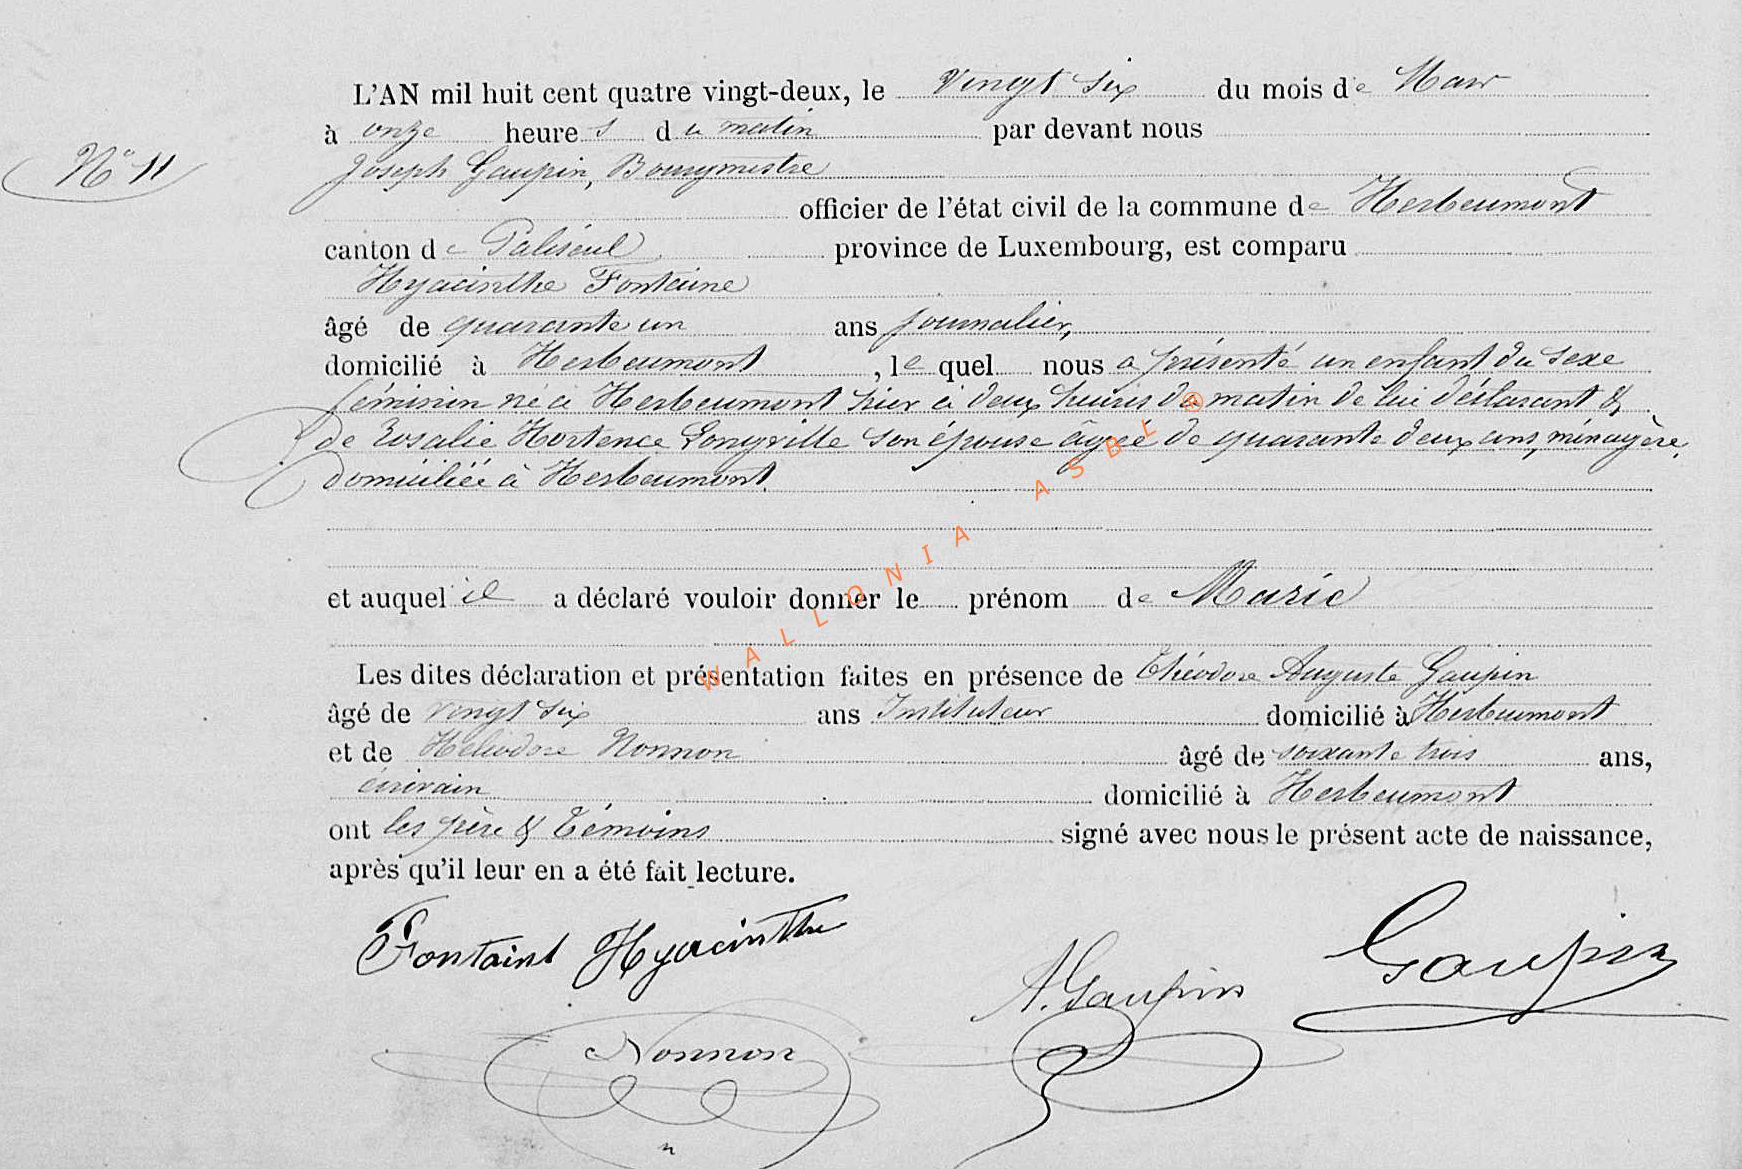 L'AN mil huit cent quatre vingt-deux, le vingt six du mois de Mars
à onze heures du matin par devant nous
N° 11
Joseph Gaupin, Bourgmestre
officier de l'état civil de la commune de Herbeumont
canton de Paliseul province de Luxembourg, est comparu
Hyacinthe Fontaine
âgé de quarante un ans journalier,
domicilié à Herbeumont, le quel nous a présenté un enfant du sexe
féminin né à Herbeumont hier à deux heures du matin de lui déclarant &
de Rosalie Hortence Longville son épouse âgée de quarante deux ans, ménagère,
domiciliée à Herbeumont.
et auquel il a déclaré vouloir donner le prénom de Marie
Les dites déclaration et présentation faites en présence de Théodore Auguste Gaupin
âgé de vingt six ans Instituteur domicilié à Herbeumont
et de Héliodore Nonnon âgé de soixante trois ans,
écrivain domicilié à Herbeumont
ont les père & témoins signé avec nous le présent acte de naissance,
après qu'il leur en a été fait lecture.
Fontaine Hyacinthe
A. Gaupin
Gaupin
Nonnon
WALLONIA ASBL ®